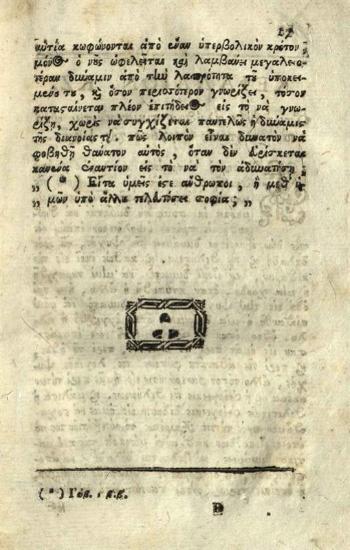 αὐτία κωφώνονται ἀπὸ ἕναν ὑπερβολικὸν κρότον
μόν ὁ νοῦς ὠφελεῖται καὶ λαμβάνει μεγαλειο-
τέραν δύναμιν ἀπὸ τὴν λαμπρότητα τοῦ ὑποκει-
μένου του, καὶ ὅσον περισσότερον γνωρίζει, τόσον
κατασαίνεται πλέον ἐπιτήδειος εἰς τὸ νὰ γνω-
ρίζῃ, χωρὶς νὰ συγχίζεται παντελῶς ἡ δύναμις
τῆς διανοίας του. πῶς λοιπὸν εἶναι δυνατὸν νὰ
φοβηθῇ θάνατον αὐτὸς, ὅταν δὲν εὑρίσκεται
κανένα ἐναντίον εἰς τὸ νὰ τὸν ἀδυνατήσῃ.
„ (*) Εἶτα ὑμεῖς ἐστε ἄνθρωποι, ἢ μεθ᾽ ὑ-
„ μῶν τελευτήσει σοφία; „
(*) Ιώβ. ιβ.β.
D